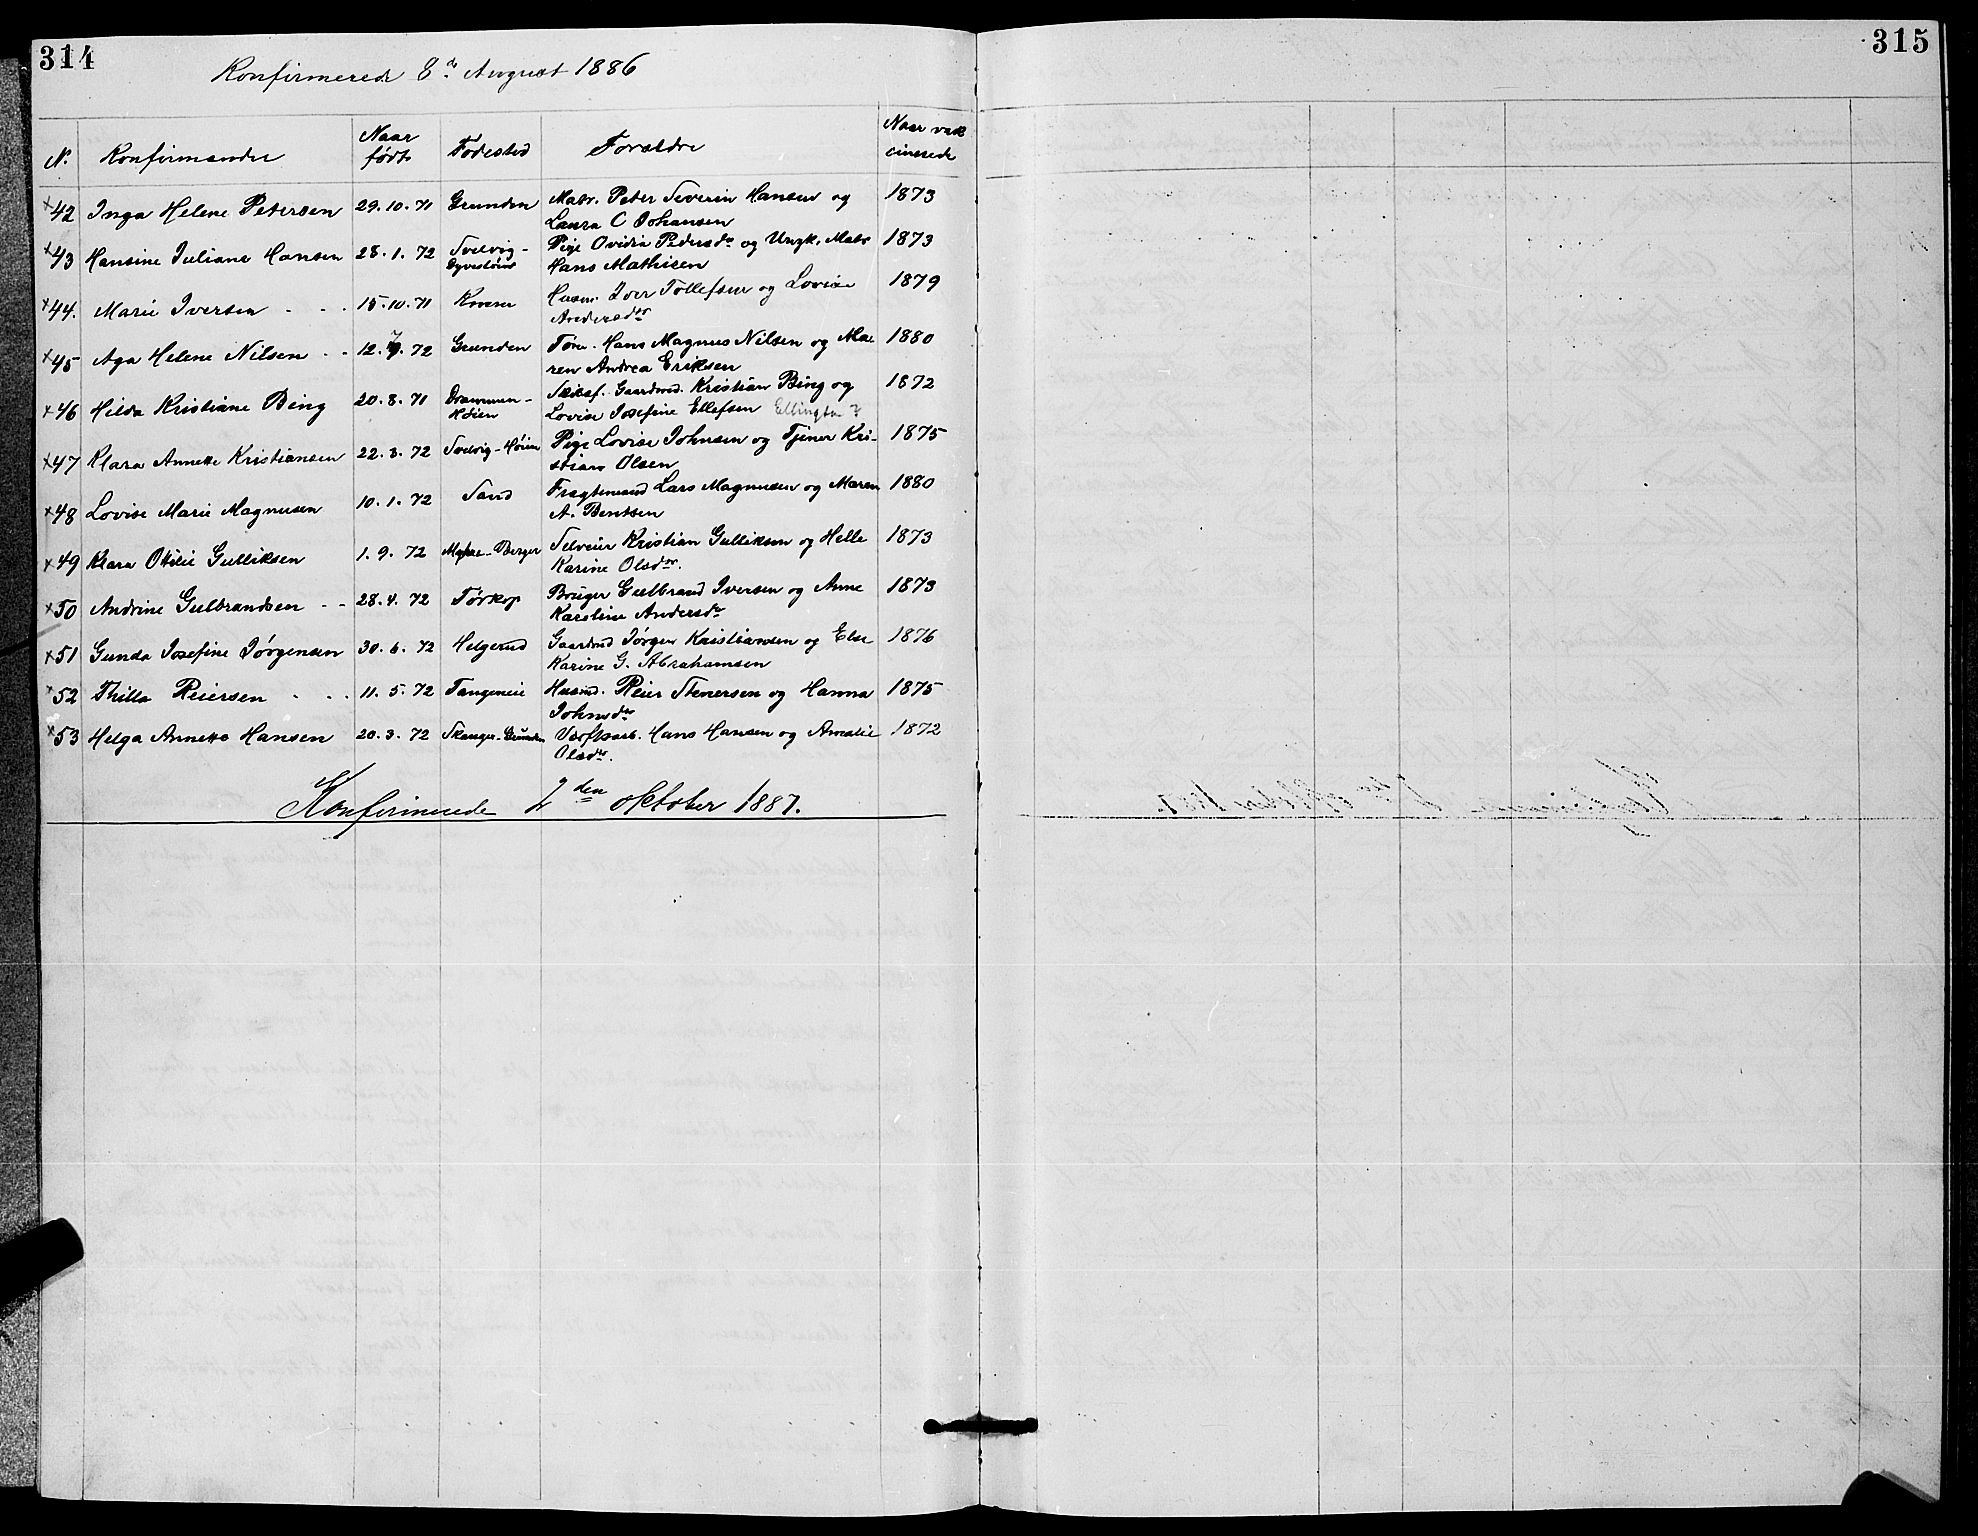 314
315
Konfirmerede 8de August 1886
N. Konfirmander Naar født Fødested Forældre Naar vakcinerede
×42 Inga Helene Petersen 29.10.71 Grunden Matr. Peter Severin Hansen og 1873
Laura C Johansen
×43 Hansine Juliane Hansen 28.1.72 Svelvig- Pige Ovidia Pedersdr og Ungk. Matr 1873
Hans Mathisen
×44. Marie Iversen 15.10.71 Husm. Iver Tollefsen og Lovise 1879
Andersdtr
×45 Aga Helene Nilsen 12. 7. 72 Grunden Tøm. Hans Magnus Nilsen og Ma 1880
ren Andrea Eriksen
×46 Hilda Kristiane Bing 20.8.71 Drammen- Gaardmd. Kristian Bing og 1872
Høien Lovise Josefine Ellefsen Ellingsen ?
×47 Klara Annette Kristiansen 22.3.72 Svelvig-Høien Pige Lovise Johnsen og Tjener Kri- 1875
stian Olsen
×48 Lovise Marie Magnusen 10.1.72 Sand Fragtemand Lars Magnusen og Maren 1880
A. Bentsen
×49 Klara Otilie Gulliksen 1.9.72 Berger Selveier Kristian Gulliksen og Helle 1873
Karine Olsdtr.
×50 Andrine Gulbrandsen 28.4.72 Tørkop Bruger Gulbrand Iversen og Anne 1873
Karoline Andersdr
×51 Gunda Josefine Jørgensen 30.6.72 Helgerud Gaardmd Jørgen Kristiansen og Else 1876
Karine G. Abrahamsen
×52 Thilla Reiersen 11.5.72 Tangeneie Husmd. Reier Stenersen og Hanna 1875
Johnsdtr
×53 Helga Annette Hansen 20.3.72 Skanger-Grunden Værftsarb. Hans Hansen og Amalie 1872
Olsdtr.
Konfirmerede 2den oktober 1887.